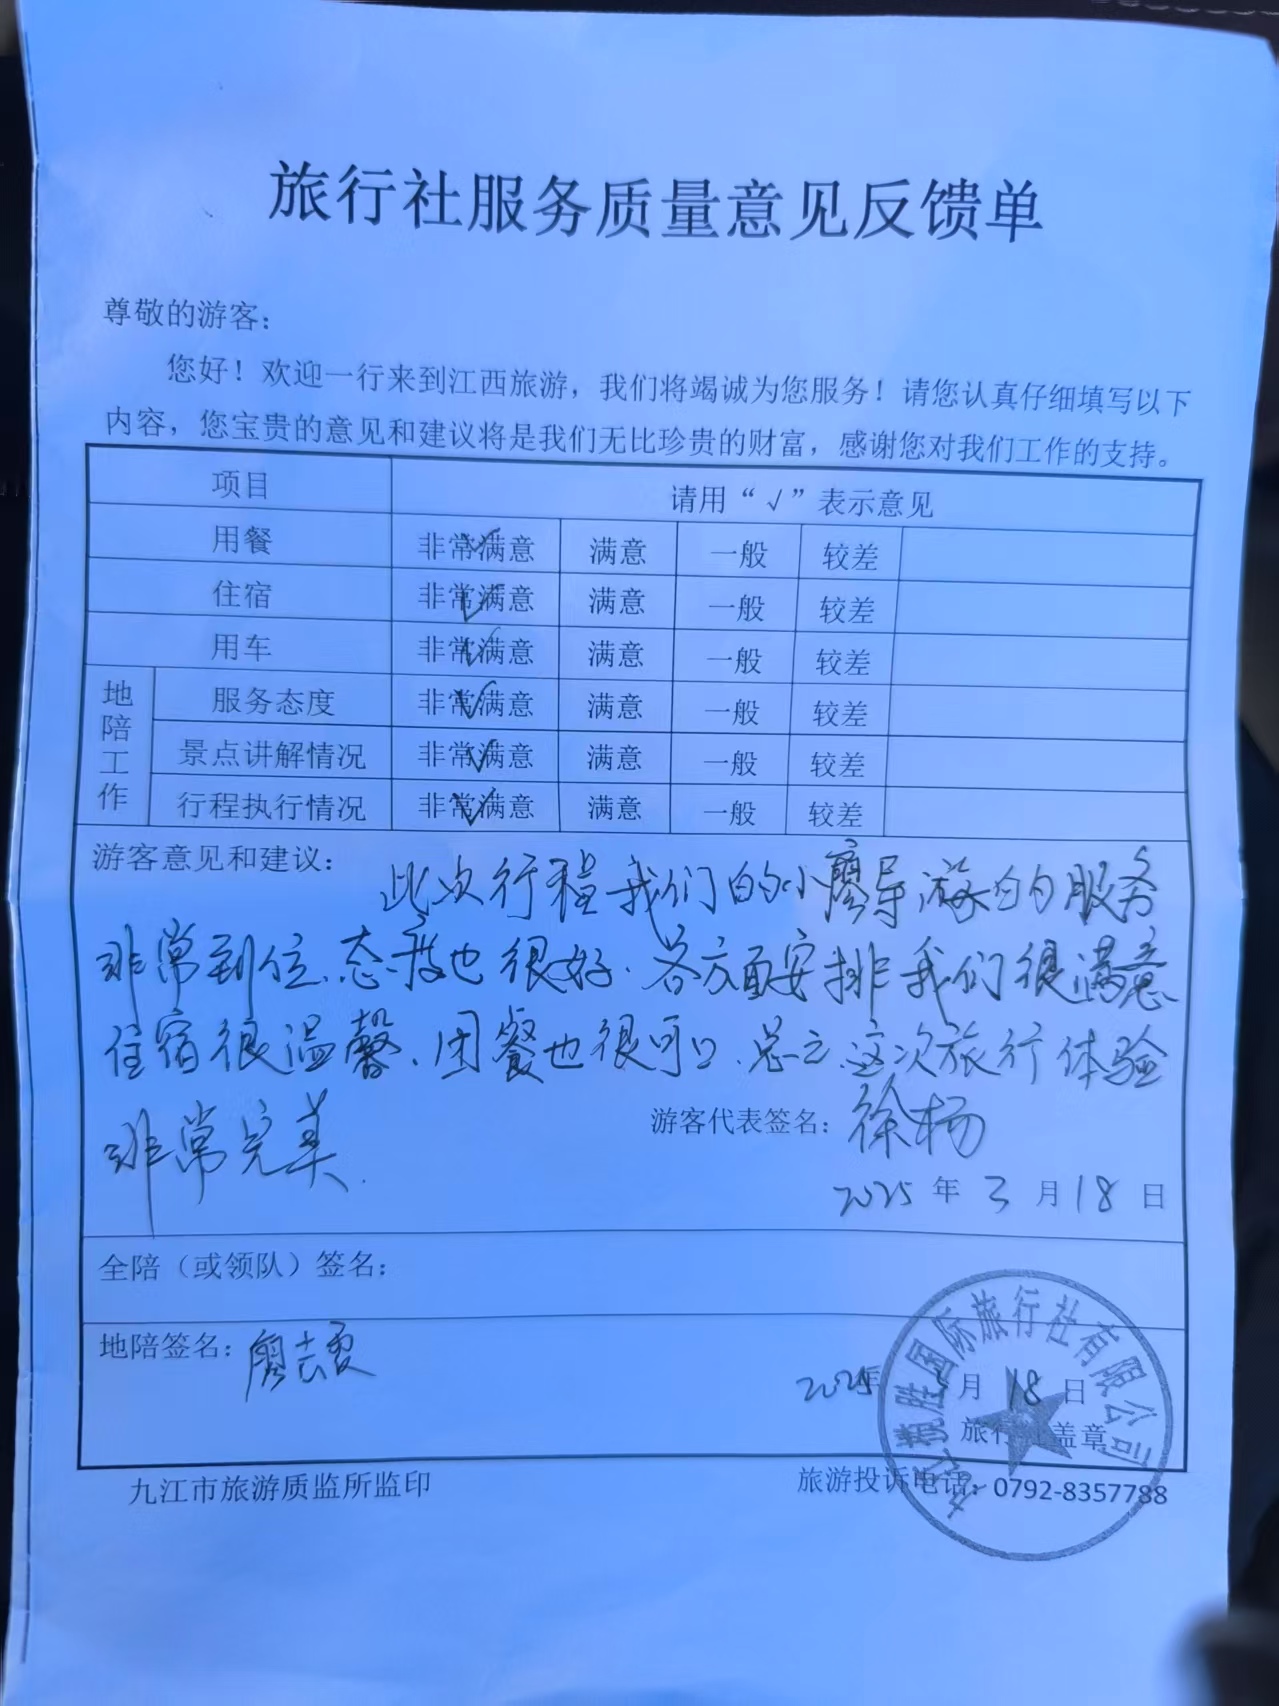 旅行社服务质量意见反馈单
尊敬的游客：
您好！欢迎一行来到江西旅游，我们将竭诚为您服务！请您认真仔细填写以下
内容，您宝贵的意见和建议将是我们无比珍贵的财富，感谢您对我们工作的支持。
项目 请用“√”表示意见
用餐 非常满意 √ 满意 一般 较差
住宿 非常满意 √ 满意 一般 较差
用车 非常满意 √ 满意 一般 较差
地陪工作
服务态度 非常满意 √ 满意 一般 较差
景点讲解情况 非常满意 √ 满意 一般 较差
行程执行情况 非常满意 √ 满意 一般 较差
游客意见和建议：此次行程我们的小廖导游的服务
非常到位、态度也很好．各方面安排我们很满意
住宿很温馨、团餐也很可口、总之这次旅行体验
非常完美．
游客代表签名：徐杨
2025年3月18日
全陪（或领队）签名：
地陪签名：廖
2025年3月18日
旅行社盖章
胜国际旅行社有限公司
九江市旅游质监所监印 旅游投诉电话：0792-8357788